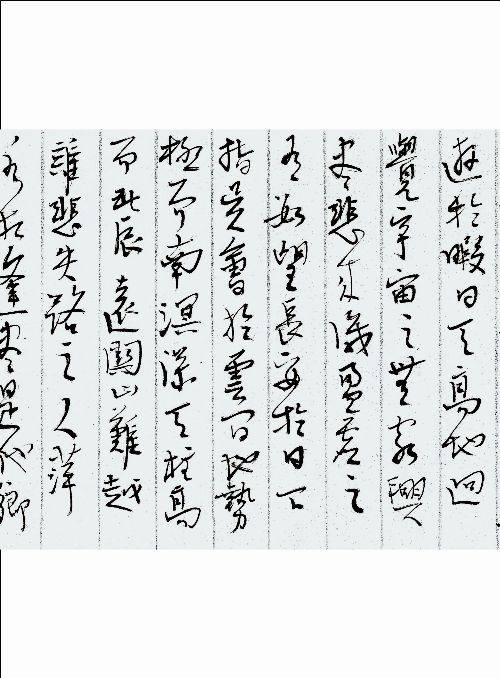 遊於暇日天高地迥
覺宇宙之無窮興
盡悲来識盈虚之
有數望長安於日下
指吴會於雲間地勢
極而南溟深天柱高
而北辰遠關山難越
誰悲失路之人萍
水相逢盡是他鄉